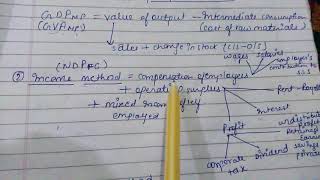 GDPMP = value of output - Intermediate consumption
(GVAMP) (cost of raw materials)
sales + change in stock (C/S - O/S)
wages salaries employer's contribution to S.S.S
(NDPFC)
② Income method = compensation of employees
+ operating surplus
Rent Royalty
+ mixed income of self
Interest
employed
Profit
corporate tax Dividend